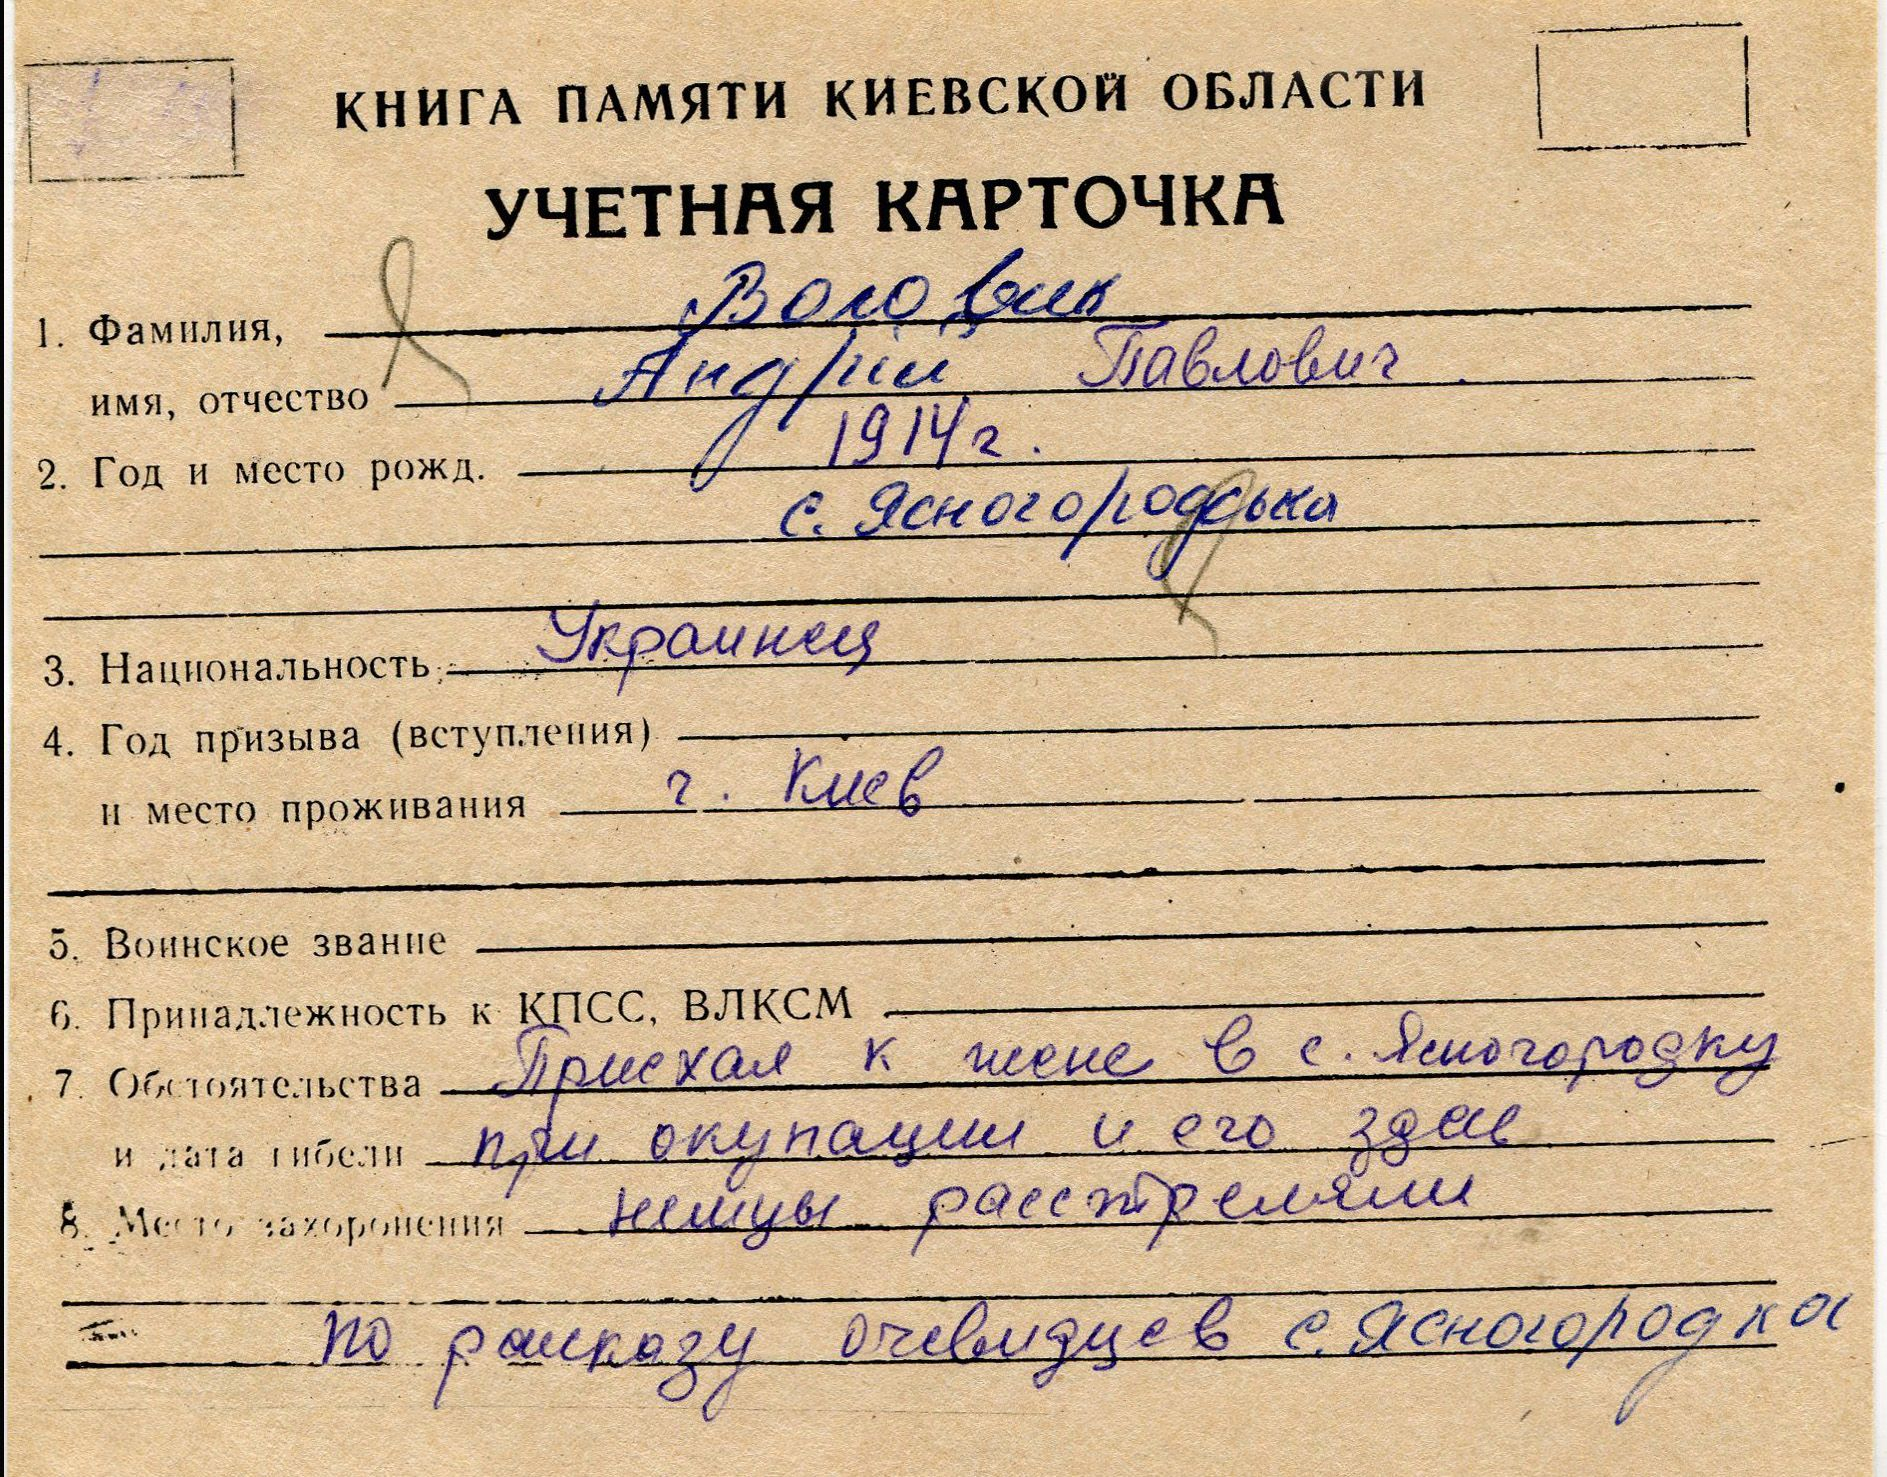 КНИГА ПАМЯТИ КИЕВСКОЙ ОБЛАСТИ
УЧЕТНАЯ КАРТОЧКА
1. Фамилия,
имя, отчество Андрій Павлович
2. Год и место рожд. 1914 г.
с. Ясногородська
3. Национальность Украинец
4. Год призыва (вступления)
и место проживания г. Киев
5. Воинское звание
6. Принадлежность к КПСС, ВЛКСМ
7. Обстоятельства Приехал к жене в с. Ясногородку
и дата гибели при окупации и его здав
8. Место захоронения немцы расстреляли
по расказу очевидцев с. Ясногородка